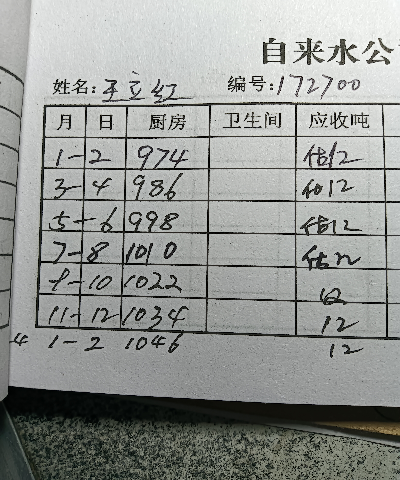 自来水公
姓名: 王立红 编号: 172700
月 日 厨房 卫生间 应收吨
1-2 974 估12
3-4 986 估12
5-6 998 估12
7-8 1010 估12
9-10 1022 12
11-12 1034 12
4 1-2 1046 12